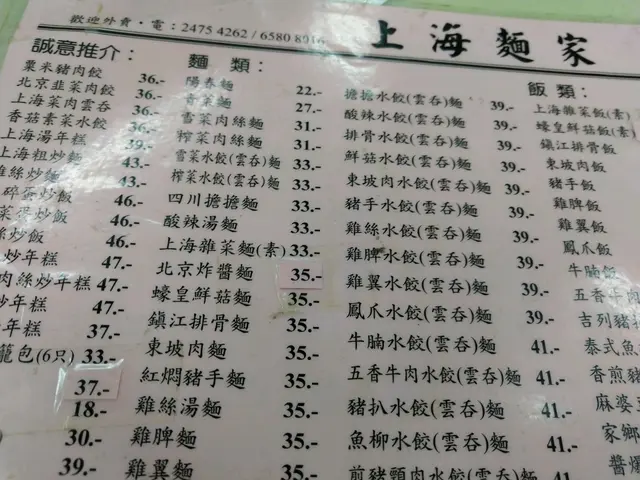 歡迎外賣·電：2475 4262 / 6580 8016
上海麵家
誠意推介：
粟米豬肉餃 36.-
北京韭菜肉餃 36.-
上海菜肉雲吞 36.-
香菇素菜水餃 36.-
上海湯年糕 39.-
上海粗炒麵 43.-
絲炒麵 43.-
碎蛋炒飯 46.-
蛋炒飯 46.-
炒飯 46.-
炒年糕 47.-
肉絲炒年糕 47.-
炒年糕 47.-
年糕 37.-
籠包(6只) 33.-
37.-
18.-
30.-
39.-
麵類：
陽春麵 22.-
香菜麵 27.-
雪菜肉絲麵 31.-
榨菜肉絲麵 31.-
雪菜水餃(雲吞)麵 33.-
榨菜水餃(雲吞)麵 33.-
四川擔擔麵 33.-
酸辣湯麵 33.-
上海雜菜麵(素) 33.-
北京炸醬麵 35.-
蠔皇鮮菇麵 35.-
鎮江排骨麵 35.-
東坡肉麵 35.-
紅燜豬手麵 35.-
雞絲湯麵 35.-
雞脾麵 35.-
雞翼麵 35.-
擔擔水餃(雲吞)麵 39.-
酸辣水餃(雲吞)麵 39.-
排骨水餃(雲吞)麵 39.-
鮮菇水餃(雲吞)麵 39.-
東坡肉水餃(雲吞)麵 39.-
豬手水餃(雲吞)麵 39.-
雞絲水餃(雲吞)麵 39.-
雞脾水餃(雲吞)麵 39.-
雞翼水餃(雲吞)麵 39.-
鳳爪水餃(雲吞)麵 39.-
牛腩水餃(雲吞)麵 41.-
五香牛肉水餃(雲吞)麵 41.-
豬扒水餃(雲吞)麵 41.-
魚柳水餃(雲吞)麵 41.-
煎豬頸肉水餃(雲吞)麵 41.-
飯類：
上海雜菜飯(素)
蠔皇鮮菇飯(素)
鎮江排骨飯
東坡肉飯
豬手飯
雞脾飯
雞翼飯
鳳爪飯
牛腩飯
五香牛
吉列豬
泰式魚
香煎豬
麻婆
家鄉
醬爆